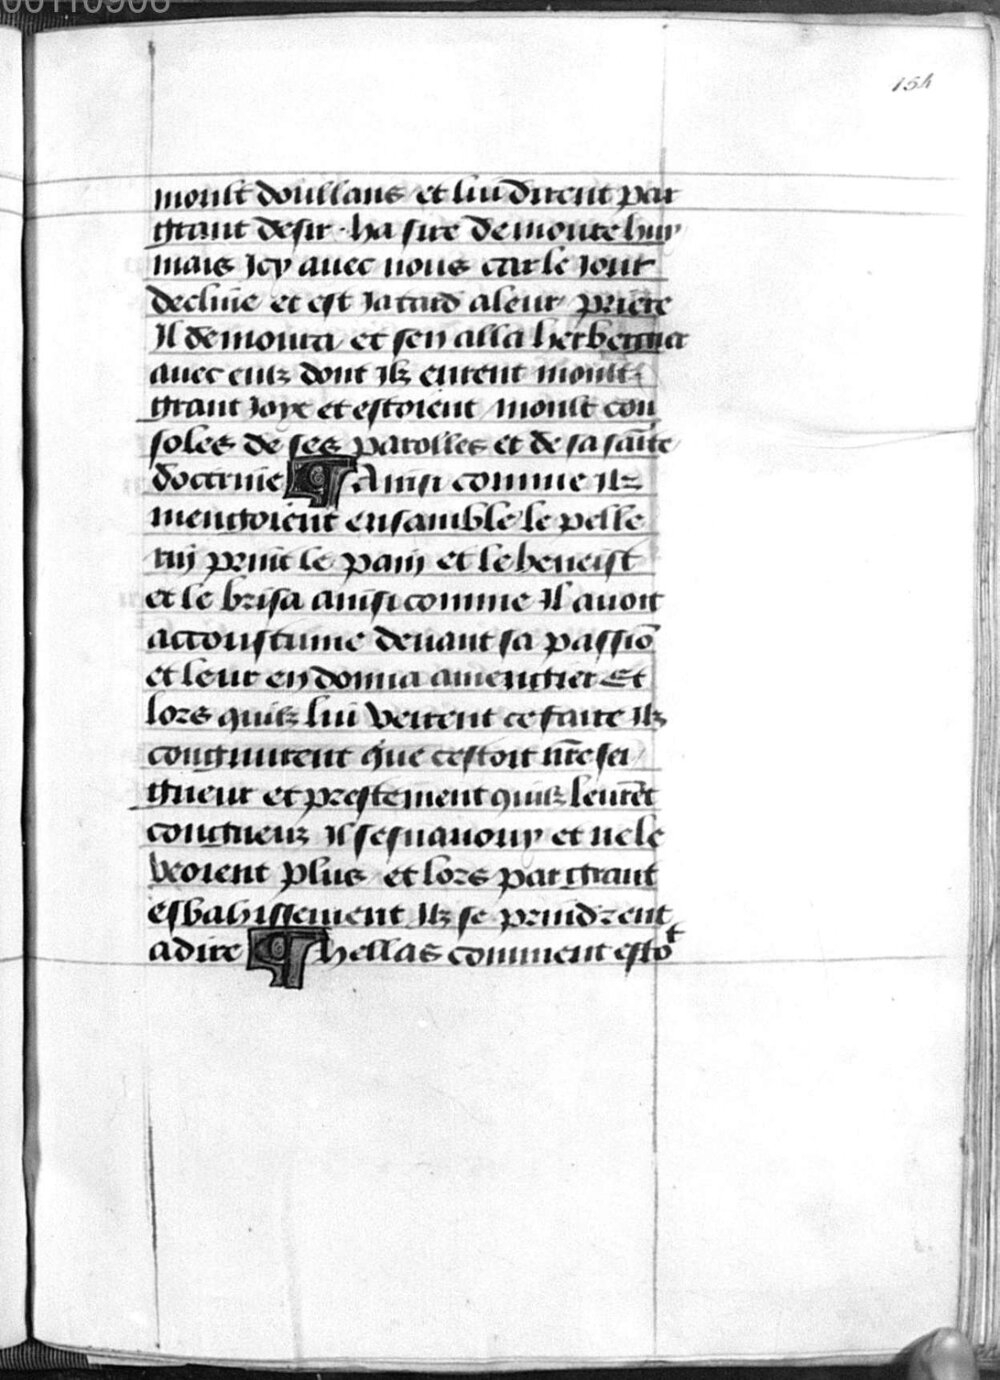 154
moult doullans et lui dirent par
grant desir · ha sire demoure huy
mais Icy auec nous car le Jour
decline et est Ja tard a leur priere
Il demoura et sen alla herbergier
auec eulz dont Ilz eurent moult
grant Joye et estoient moult con
soles de ses parolles et de sa saīte
doctrine ¶ Ainsi comme Ilz
mengoient ensamble le pelle
rin print le pain et le beneist
et le brisa ainsi comme Il auoit
accoustume deuant sa passiō
et leur en donna a mengier Et
lors quilz lui veirent ce faire Ilz
congnurent que cestoit nr̄e sei
gneur et prestement quilz leurēt
congneuz Il sesuanouy et ne le
veoient plus et lors par grant
esbahissement Ilz se prindrent
a dire ¶ hellas comment estoᵗ